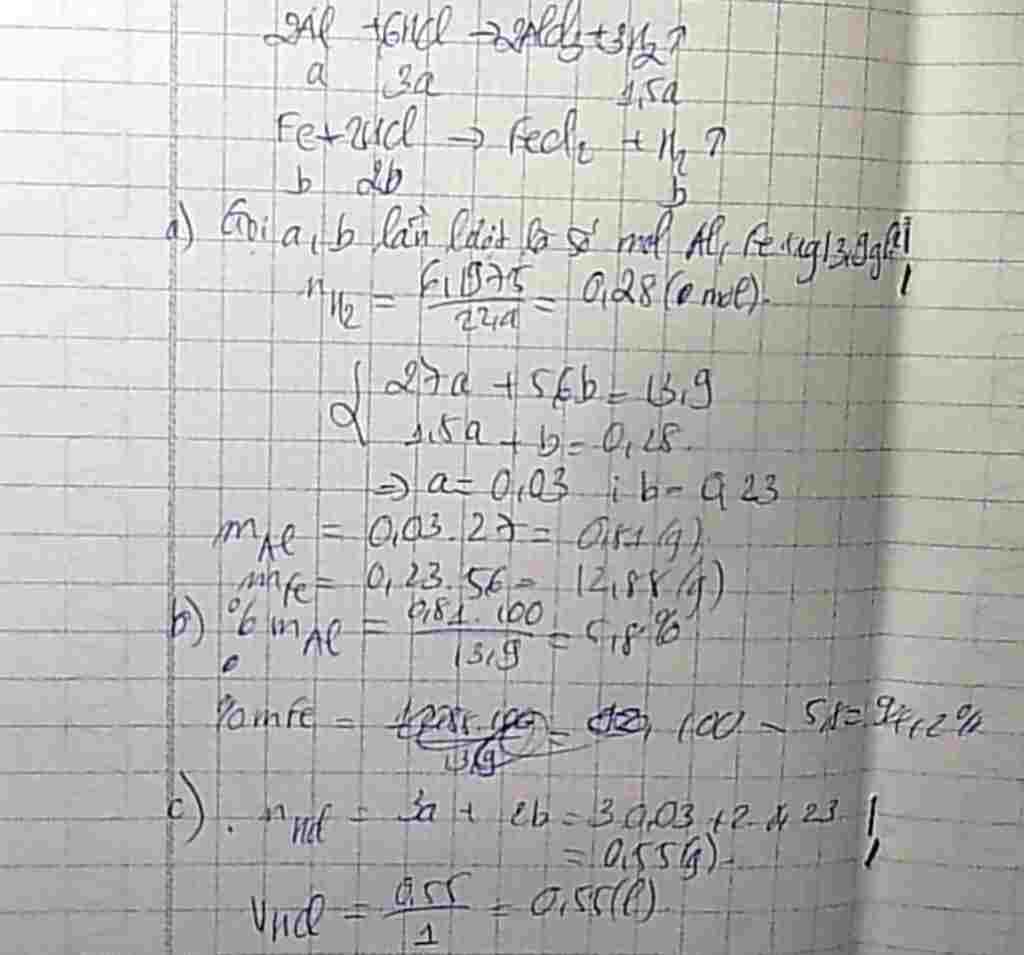 2Al + 6HCl → 2AlCl3 + 3H2 ↑
a 3a 1,5a
Fe + 2HCl → FeCl2 + H2 ↑
b 2b b
a) Gọi a, b lần lượt là số mol Al, Fe 13,9g
nH2 = 6,1975 / 22,4 = 0,28 (mol).
27a + 56b = 13,9
1,5a + b = 0,28.
⇒ a = 0,03 ; b = 0,23
mAl = 0,03.27 = 0,81 (g)
mFe = 0,23.56 = 12,88 (g)
b) % mAl = 0,81.100 / 13,9 = 5,8%
%mFe = 100 - 5,8 = 94,2%
c). nHCl = 3a + 2b = 3.0,03 + 2.0,23
= 0,55 (g).
VHCl = 0,55 / 1 = 0,55 (l).